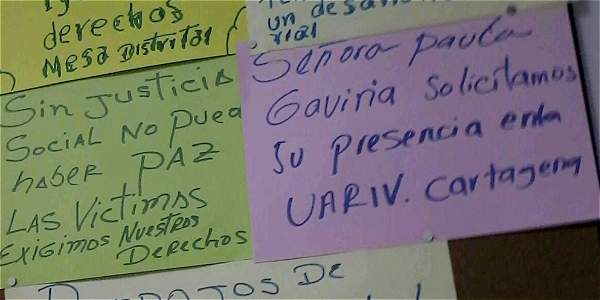 derechos
Mesa Distrital
un
Señora Paula
Gaviria Solicitamos
su presencia en la
UARIV. Cartagena
Sin Justicia
Social No pued
haber PAZ
LAS Victimas
Exigimos Nuestros
Derechos
De